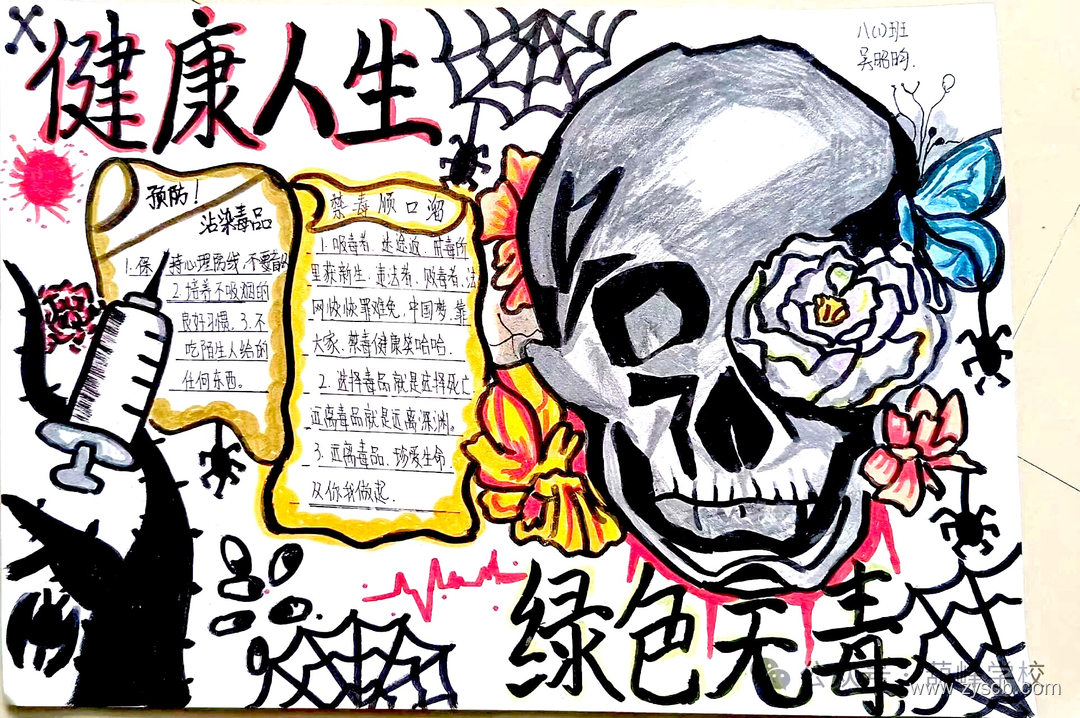 健康人生
八(1)班
吴昭昀.
预防！
沾染毒品
1.保持心理防线,不要音
2.培养不吸烟的
良好习惯。3.不
吃陌生人给的
任何东西。
禁毒顺口溜
1.吸毒者.迷途返.戒毒所
里获新生.违法者.贩毒者.法
网恢恢罪难免.中国梦.靠
大家.禁毒健康笑哈哈.
2.选择毒品就是选择死亡
远离毒品就是远离深渊。
3.远离毒品.珍爱生命.
从你我做起.
绿色无毒
公众号
学校
www.zyscb.com